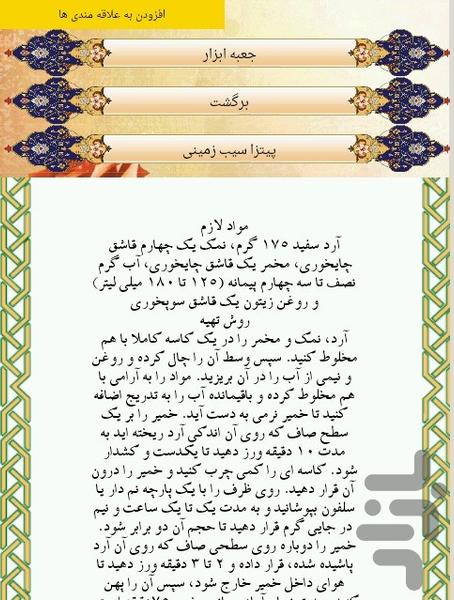 افزودن به علاقه مندی ها
جعبه ابزار
برگشت
پیتزا سیب زمینی
مواد لازم
آرد سفید ۱۷۵ گرم، نمک یک چهارم قاشق
چایخوری، مخمر یک قاشق چایخوری، آب گرم
نصف تا سه چهارم پیمانه (۱۲۵ تا ۱۸۰ میلی لیتر)
و روغن زیتون یک قاشق سوپخوری
روش تهیه
آرد، نمک و مخمر را در یک کاسه کاملا با هم
مخلوط کنید. سپس وسط آن را چال کرده و روغن
و نیمی از آب را در آن بریزید. مواد را به آرامی با
هم مخلوط کرده و باقیمانده آب را به تدریج اضافه
کنید تا خمیر نرمی به دست آید. خمیر را بر یک
سطح صاف که روی آن اندکی آرد ریخته اید به
مدت ۱۰ دقیقه ورز دهید تا یکدست و کشدار
شود. کاسه ای را کمی چرب کنید و خمیر را درون
آن قرار دهید. روی ظرف را با یک پارچه نم دار یا
سلفون بپوشانید و به مدت یک تا یک ساعت و نیم
در جایی گرم قرار دهید تا حجم آن دو برابر شود.
خمیر را دوباره روی سطحی صاف که روی آن آرد
پاشیده شده، قرار داده و ۲ تا ۳ دقیقه ورز دهید تا
هوای داخل خمیر خارج شود، سپس آن را پهن
بازار